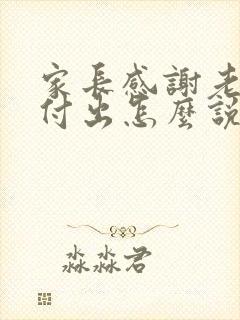 家長感謝老
付出怎麼說
淼淼君